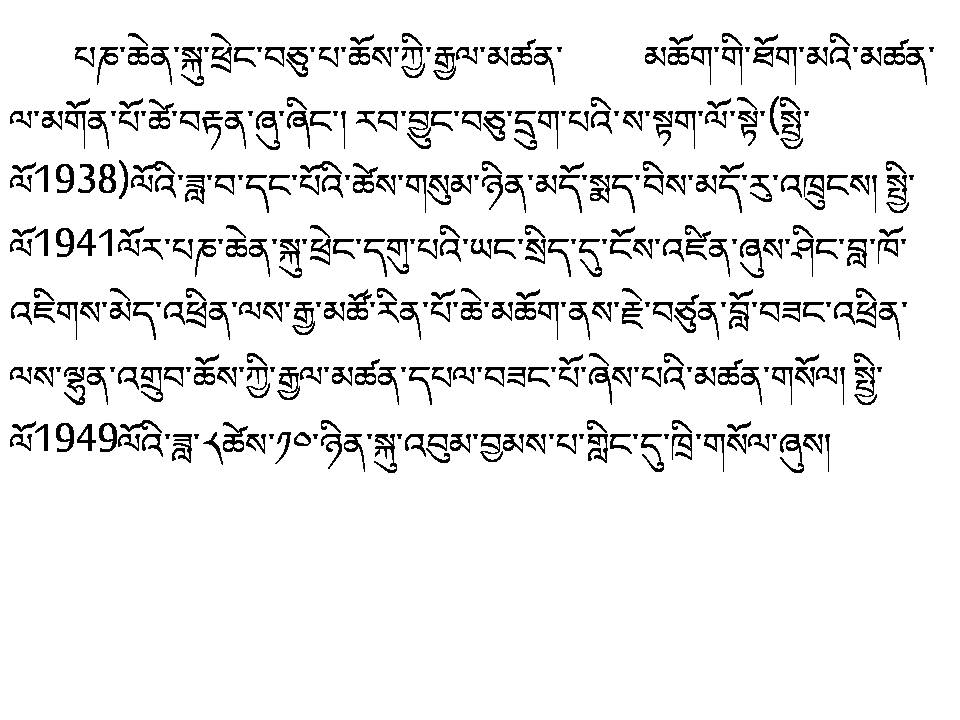 པཎ་ཆེན་སྐུ་ཕྲེང་བཅུ་པ་ཆོས་ཀྱི་རྒྱལ་མཚན་ མཆོག་གི་ཐོག་མའི་མཚན་
ལ་མགོན་པོ་ཚེ་བརྟན་ཞུ་ཞིང་། རབ་བྱུང་བཅུ་དྲུག་པའི་ས་སྟག་ལོ་སྟེ་(སྤྱི་
ལོ1938)ལོའི་ཟླ་བ་དང་པོའི་ཚེས་གསུམ་ཉིན་མདོ་སྨད་བིས་མདོ་རུ་འཁྲུངས། སྤྱི་
ལོ1941ལོར་པཎ་ཆེན་སྐུ་ཕྲེང་དགུ་པའི་ཡང་སྲིད་དུ་ངོས་འཛིན་ཞུས་ཤིང་བླ་ཁོ་
འཇིགས་མེད་འཕྲིན་ལས་རྒྱ་མཚོ་རིན་པོ་ཆེ་མཆོག་ནས་རྗེ་བཙུན་བློ་བཟང་འཕྲིན་
ལས་ལྷུན་འགྲུབ་ཆོས་ཀྱི་རྒྱལ་མཚན་དཔལ་བཟང་པོ་ཞེས་པའི་མཚན་གསོལ། སྤྱི་
ལོ1949ལོའི་ཟླ་༨ཚེས་༡༠་ཉིན་སྐུ་འབུམ་བྱམས་པ་གླིང་དུ་ཁྲི་གསོལ་ཞུས།